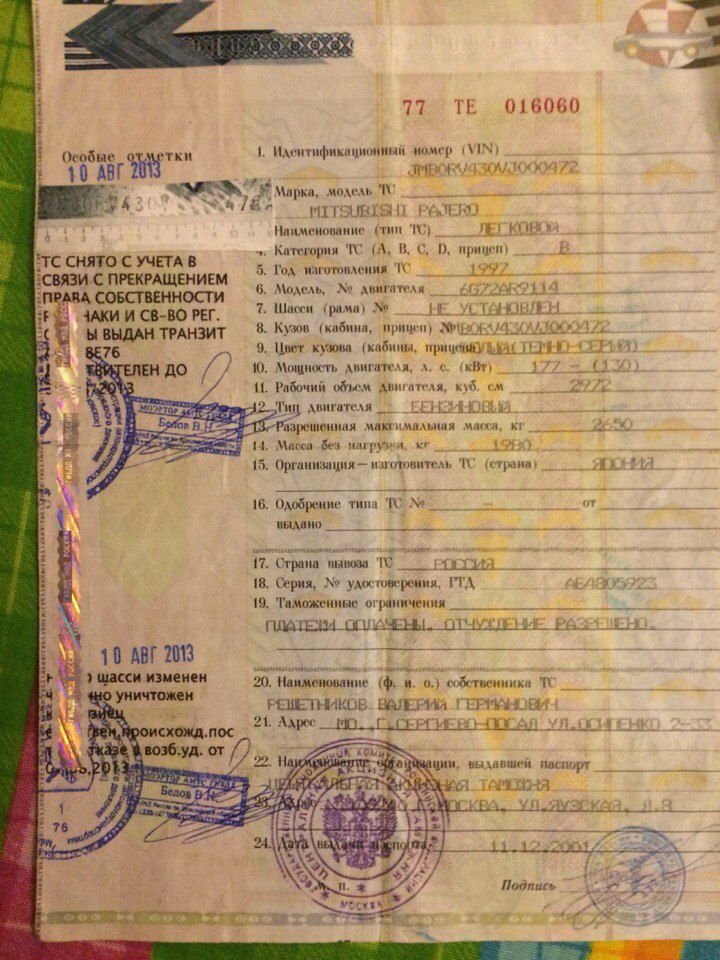 77 ТЕ 016060
Особые отметки
10 АВГ 2013
ТС СНЯТО С УЧЕТА В
СВЯЗИ С ПРЕКРАЩЕНИЕМ
ПРАВА СОБСТВЕННОСТИ
НАКИ И СВ-ВО РЕГ.
Ы ВЫДАН ТРАНЗИТ
8Е76
ТВИТЕЛЕН ДО
2013
МОЭРТОР АМТС
Белов В.Н.
10 АВГ 2013
шасси изменен
но уничтожен
твен.происхожд.пос
тказе в возб.уд. от
2013
МОЭРТОР АМТС
Белов В.Н.
1. Идентификационный номер (VIN)
JMB0RV430VJ000472
Марка, модель ТС
MITSUBISHI PAJERO
Наименование (тип ТС) ЛЕГКОВОЙ
4. Категория ТС (А, В, С, D, прицеп) В
5. Год изготовления ТС 1997
6. Модель, № двигателя 6G72AR9114
7. Шасси (рама) № НЕ УСТАНОВЛЕН
8. Кузов (кабина, прицеп) № JMB0RV430VJ000472
9. Цвет кузова (кабины, прицепа) (ТЕМНО-СЕРЫЙ)
10. Мощность двигателя, л. с. (кВт) 177 - (130)
11. Рабочий объем двигателя, куб. см 2972
12. Тип двигателя БЕНЗИНОВЫЙ
13. Разрешенная максимальная масса, кг 2650
14. Масса без нагрузки, кг 1980
15. Организация—изготовитель ТС (страна) ЯПОНИЯ
16. Одобрение типа ТС № — от
выдано
17. Страна вывоза ТС РОССИЯ
18. Серия, № удостоверения, ГТД АБ4805923
19. Таможенные ограничения
ПЛАТЕЖИ ОПЛАЧЕНЫ. ОТЧУЖДЕНИЕ РАЗРЕШЕНО.
20. Наименование (ф. и. о.) собственника ТС
РЕШЕТНИКОВ ВАЛЕРИЙ ГЕРМАНОВИЧ
21. Адрес МО., Г.СЕРГИЕВО-ПОСАД УЛ.ОСИПЕНКО 2-33
22. Наименование организации, выдавшей паспорт
ЦЕНТРАЛЬНАЯ АКЦИЗНАЯ ТАМОЖНЯ
23. Адрес Г.МОСКВА, УЛ.ЯУЗСКАЯ, Д.8
24. Дата выдачи паспорта 11.12.2001
М. п.
Подпись